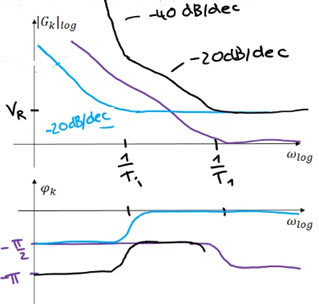 |G_k|_log
-40 dB/dec
-20dB/dec
V_R
-20dB/dec
1/T_i
1/T_1
ω_log
φ_k
ω_log
-π/2
-π